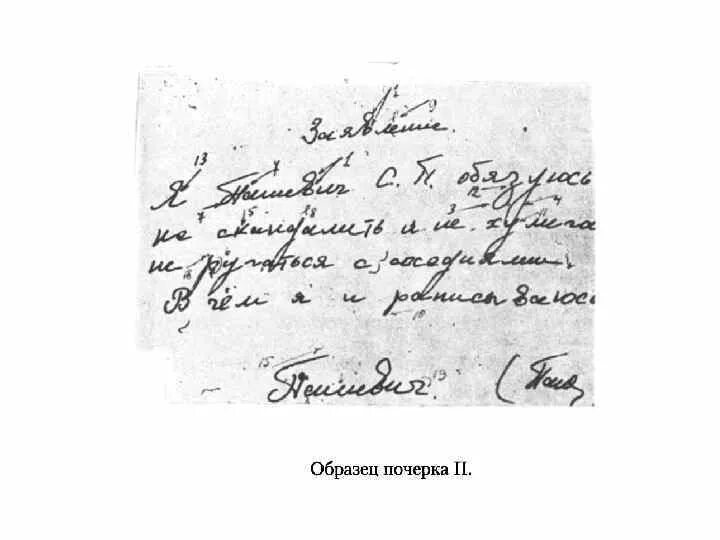 Заявление.
Я Пашкевич С. П. обязуюсь
не скандалить и не хулига
не ругаться с соседями.
В чём я и раписываюсь
Пашкевич.
Образец почерка II.